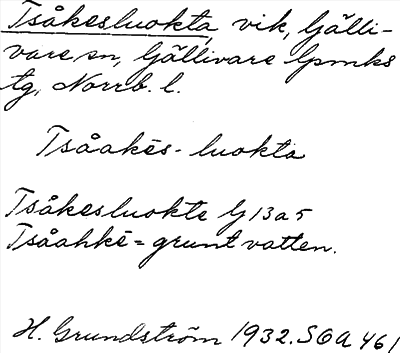 Tsåkesluokta vik, Gälli-
vare sn, Gällivare lpmks
tg, Norrb. l.
Tsåakēs-luokta
Tsåkesluokte G13a5
Tsåahkē = grunt vatten.
H. Grundström 1932. SOA 461